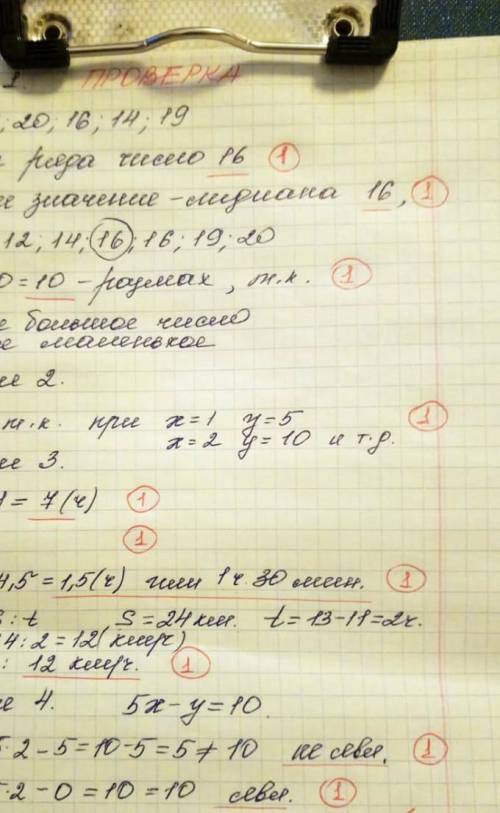 1. ПРОВЕРКА
; 20; 16; 14; 19
ряда число 16 1
значение - мидиана 16, 1
12; 14; 16; 16; 19; 20
0 = 10 - размах, т.к. 1
е большое число
е маленькое
ие 2.
т.к. при x=1 y=5 1
x=2 y=10 и т.д.
ие 3.
1 = 7(ч) 1
1
4,5 = 1,5(ч) или 1ч. 30 мин. 1
S : t S = 24 км. t = 13-11=2ч.
4 : 2 = 12 (км/ч)
: 12 км/ч. 1
ие 4. 5x - y = 10.
5·2 - 5 = 10 - 5 = 5 ≠ 10 не явл. 1
5·2 - 0 = 10 = 10 явл. 1